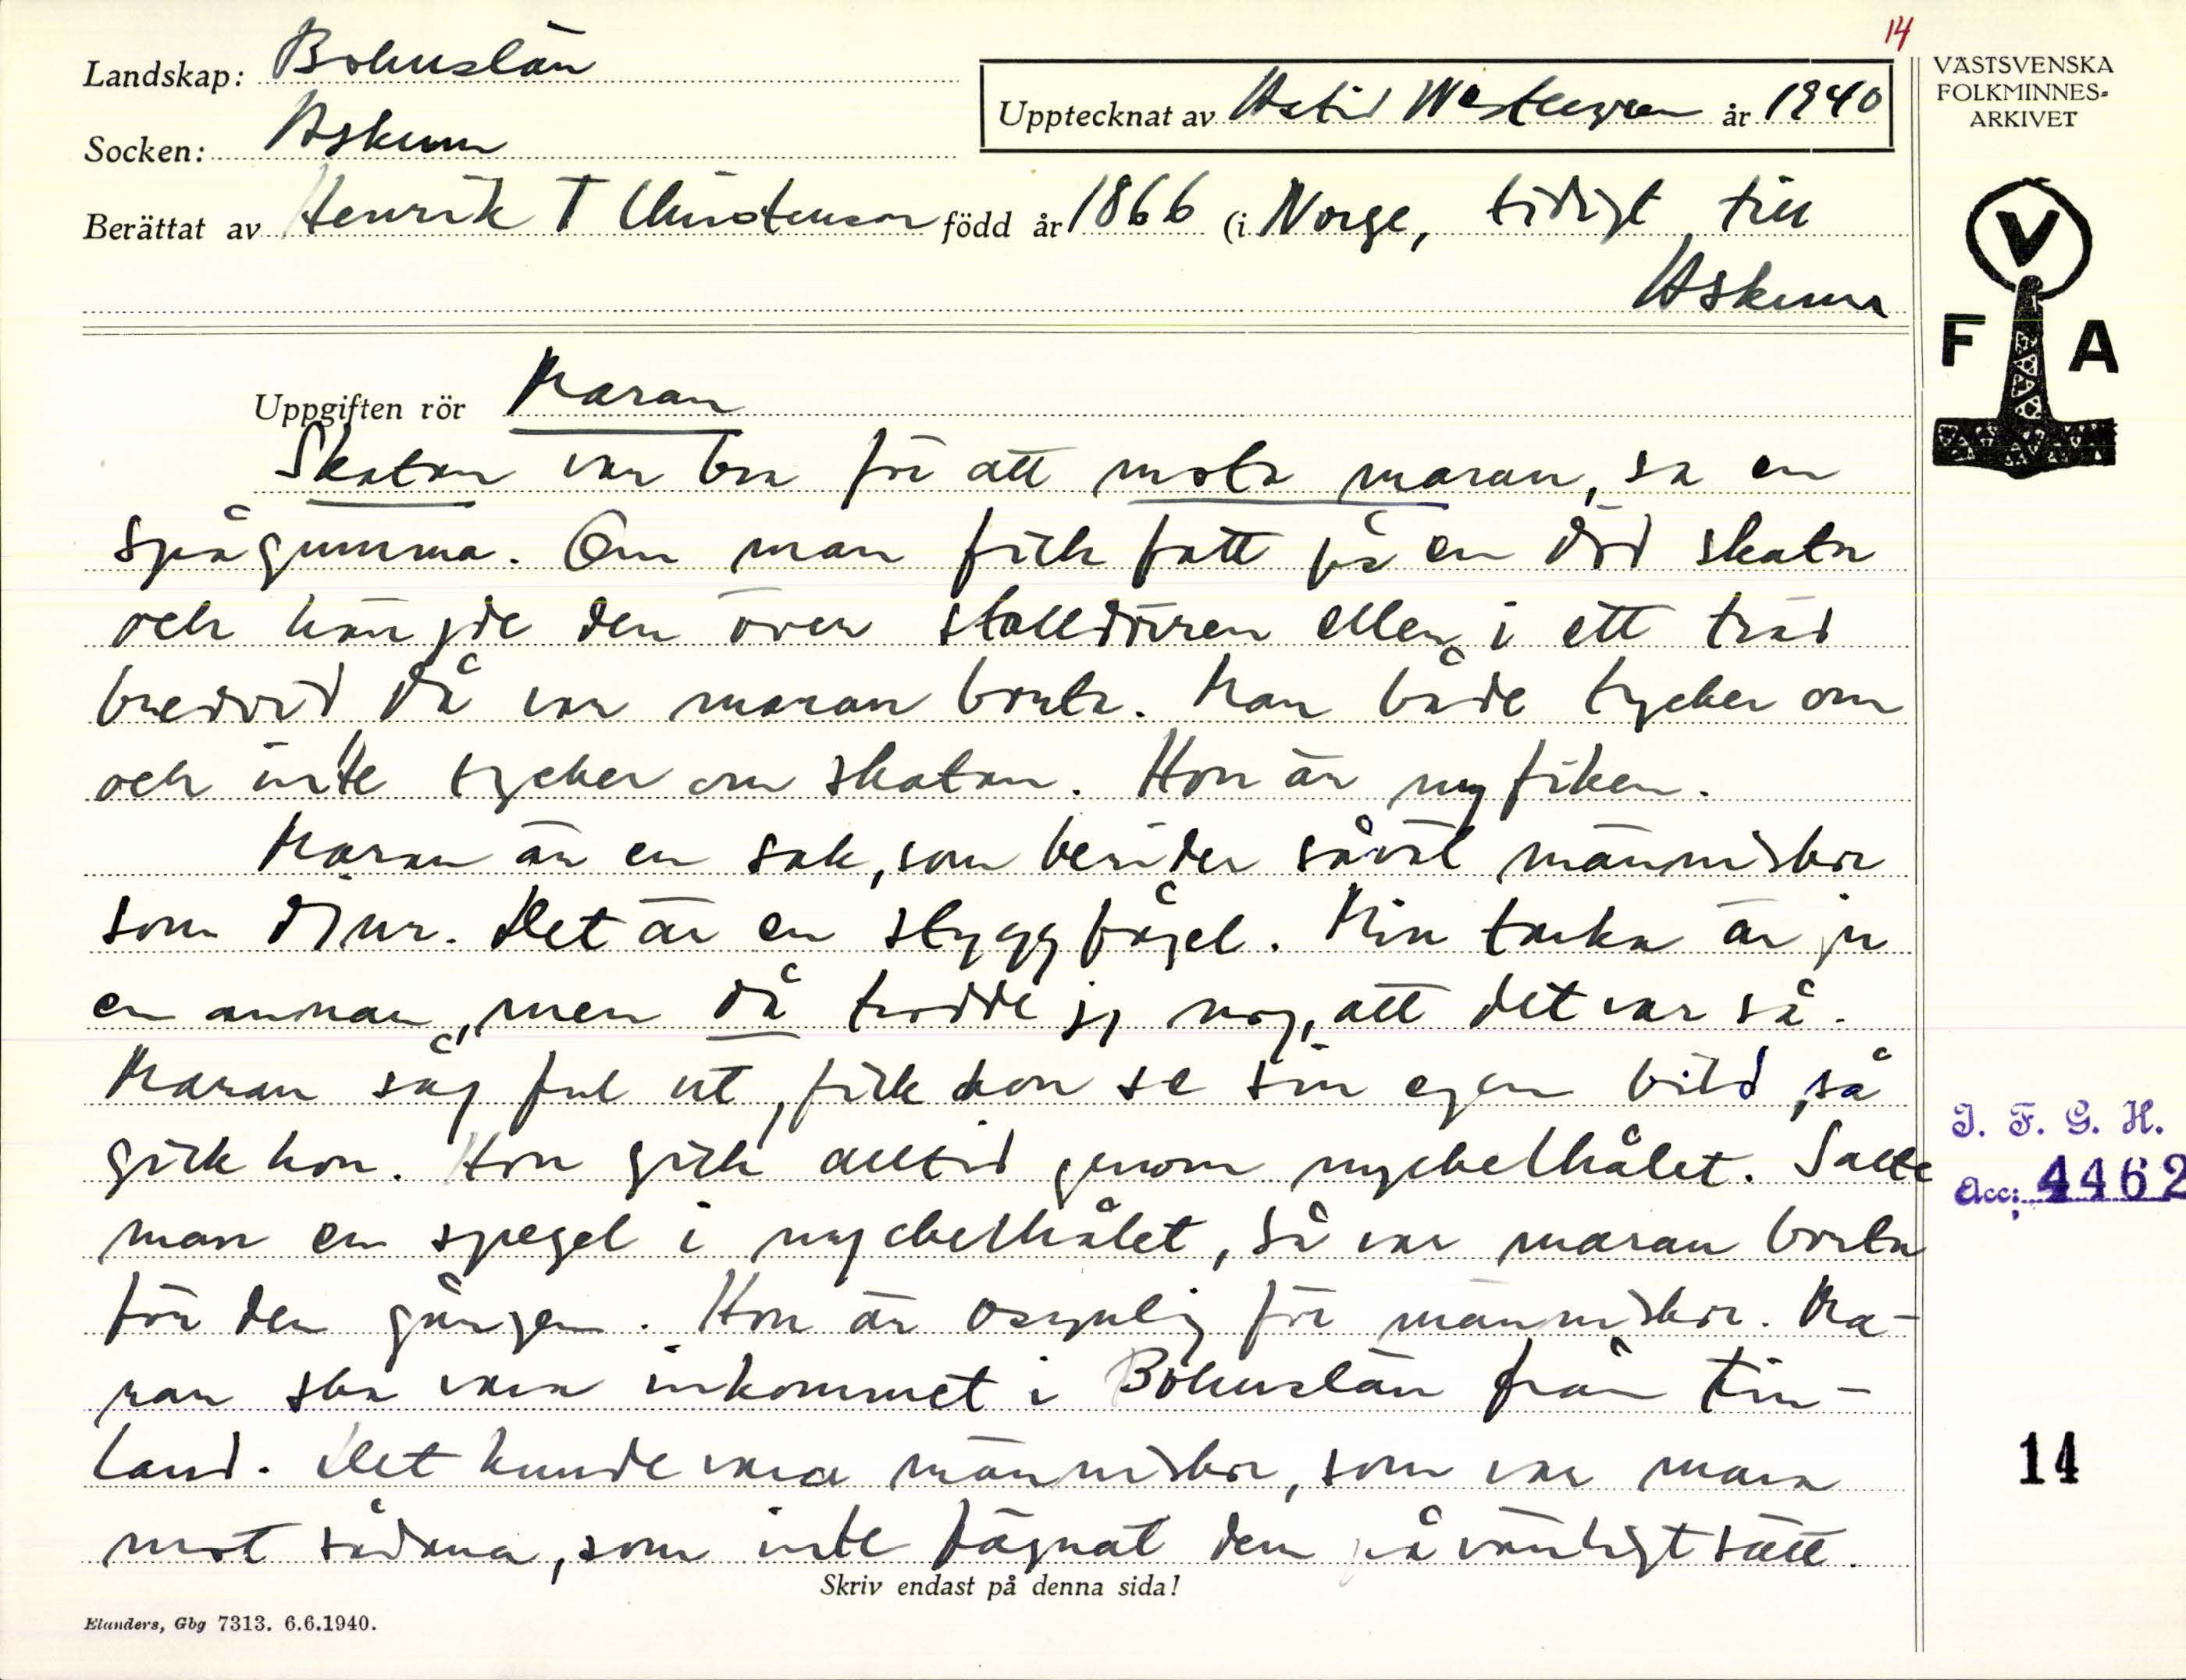 14
Landskap: Bohuslän
Upptecknat av Astrid Westergren år 1940
VÄSTSVENSKA
FOLKMINNES-
ARKIVET
Socken: Askum
Berättat av Henrik T Christenson född år 1866 (i Norge, tidigt till
Askum
V
F A
Uppgiften rör Maran
Skatan var bra för att mota maran, sa en
spågumma. Om man fick fatt på en död skata
och hängde den över stalldörren eller i ett träd
bredvid då var maran borta. Man både tycker om
och inte tycker om skatan. Hon är nyfiken.
Maran är en sak, som berider såväl människor
som djur. Det är en stygg fågel. Min tanke är ju
en annan, men då trodde jag nog, att det var så.
Maran såg ful ut, fick hon se sin egen bild, så
gick hon. Hon gick alltid genom nyckelhålet. Satte
man en spegel i nyckelhålet, så var maran borta
för den gången. Hon är osynlig för människor. Ma-
ran ska vara inkommet i Bohuslän från Fin-
land. Det kunde vara människor, som var mara
mot sådana, som inte fägnat dem på vänligt sätt.
Skriv endast på denna sida!
Elanders, Gbg 7313. 6.6.1940.
I. F. G. H.
Acc: 4462
14